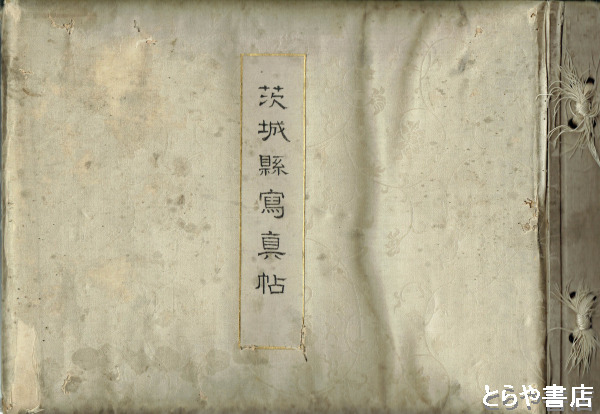 茨城縣寫真帖
とらや書店